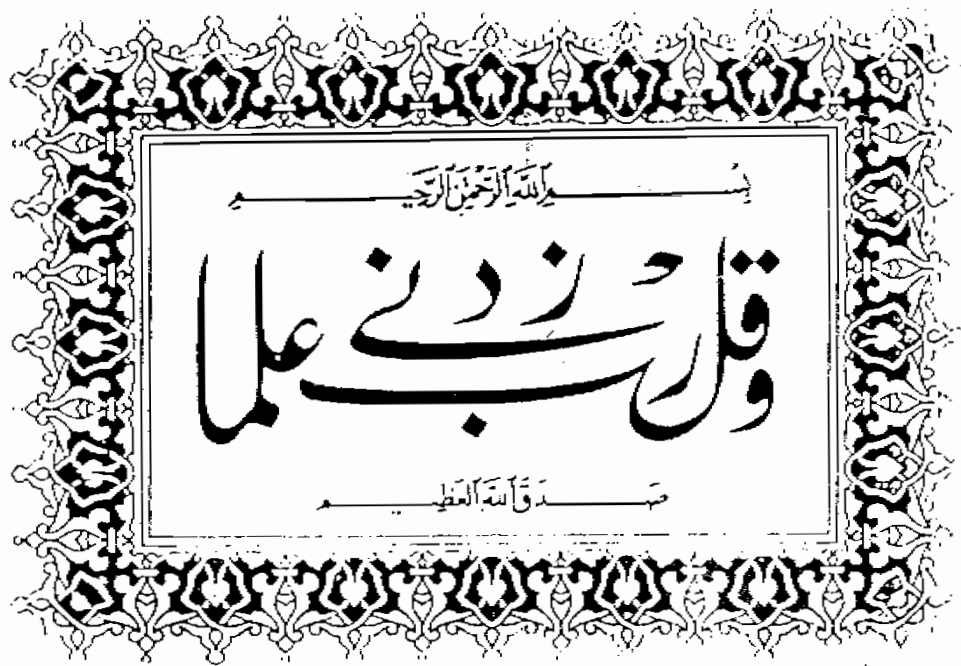 بِسْمِ ٱللَّهِ ٱلرَّحْمَٰنِ ٱلرَّحِيمِ
وقل رب زدني علما
صَدَقَ ٱللَّهُ ٱلْعَظِيم